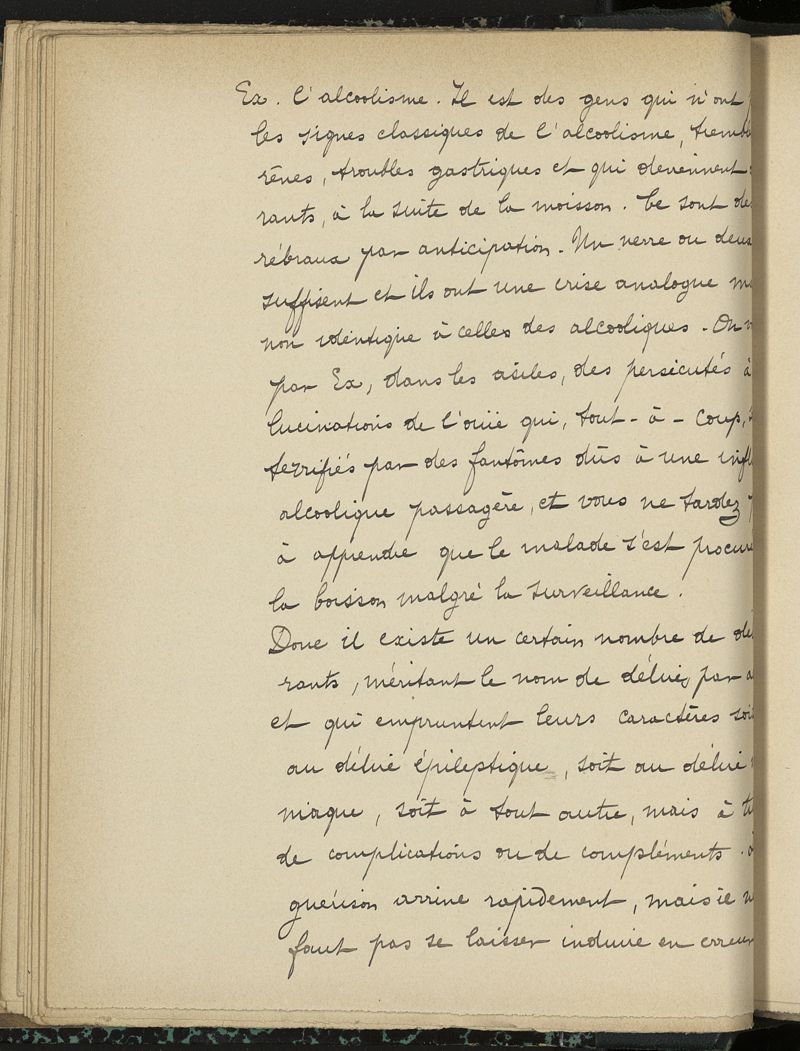 Ex. l'alcoolisme. Il est des gens qui n'ont p
les signes classiques de l'alcoolisme, tremb
rênes, troubles gastriques et qui deviennent
rants, à la suite de la moisson. Ce sont des
rébraux par anticipation. Un verre ou deux
suffisent et ils ont une crise analogue ma
non identique à celles des alcooliques. On v
par Ex, dans les asiles, des persécutés à
lucinations de l'ouïe qui, tout-à-coup, s
terrifiés par des fantômes dûs à une infl
alcoolique passagère, et vous ne tardez p
à apprendre que le malade s'est procuré
la boisson malgré la surveillance.
Donc il existe un certain nombre de déli
rants, méritant le nom de délires par a
et qui empruntent leurs caractères soit
au délire épileptique, soit au délire
niaque, soit à tout autre, mais à ti
de complications ou de compléments.
guérison arrive rapidement, mais il n
faut pas se laisser induire en erreur